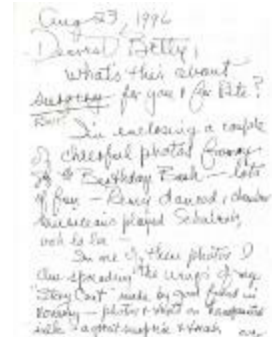 Aug 23, 1996
Dearest Betty,
What's this about
surgery for you & for Pete?
I'm enclosing a couple
of cheerful photos from
my Birthday Bash — lots
of fun — danced, chamber
musicians played Schubert,
ooh la la —
In one of these photos I
am spreading the wings of my
"Story Coat" made by good friend in
photos & on
silk — a great surprise &
over